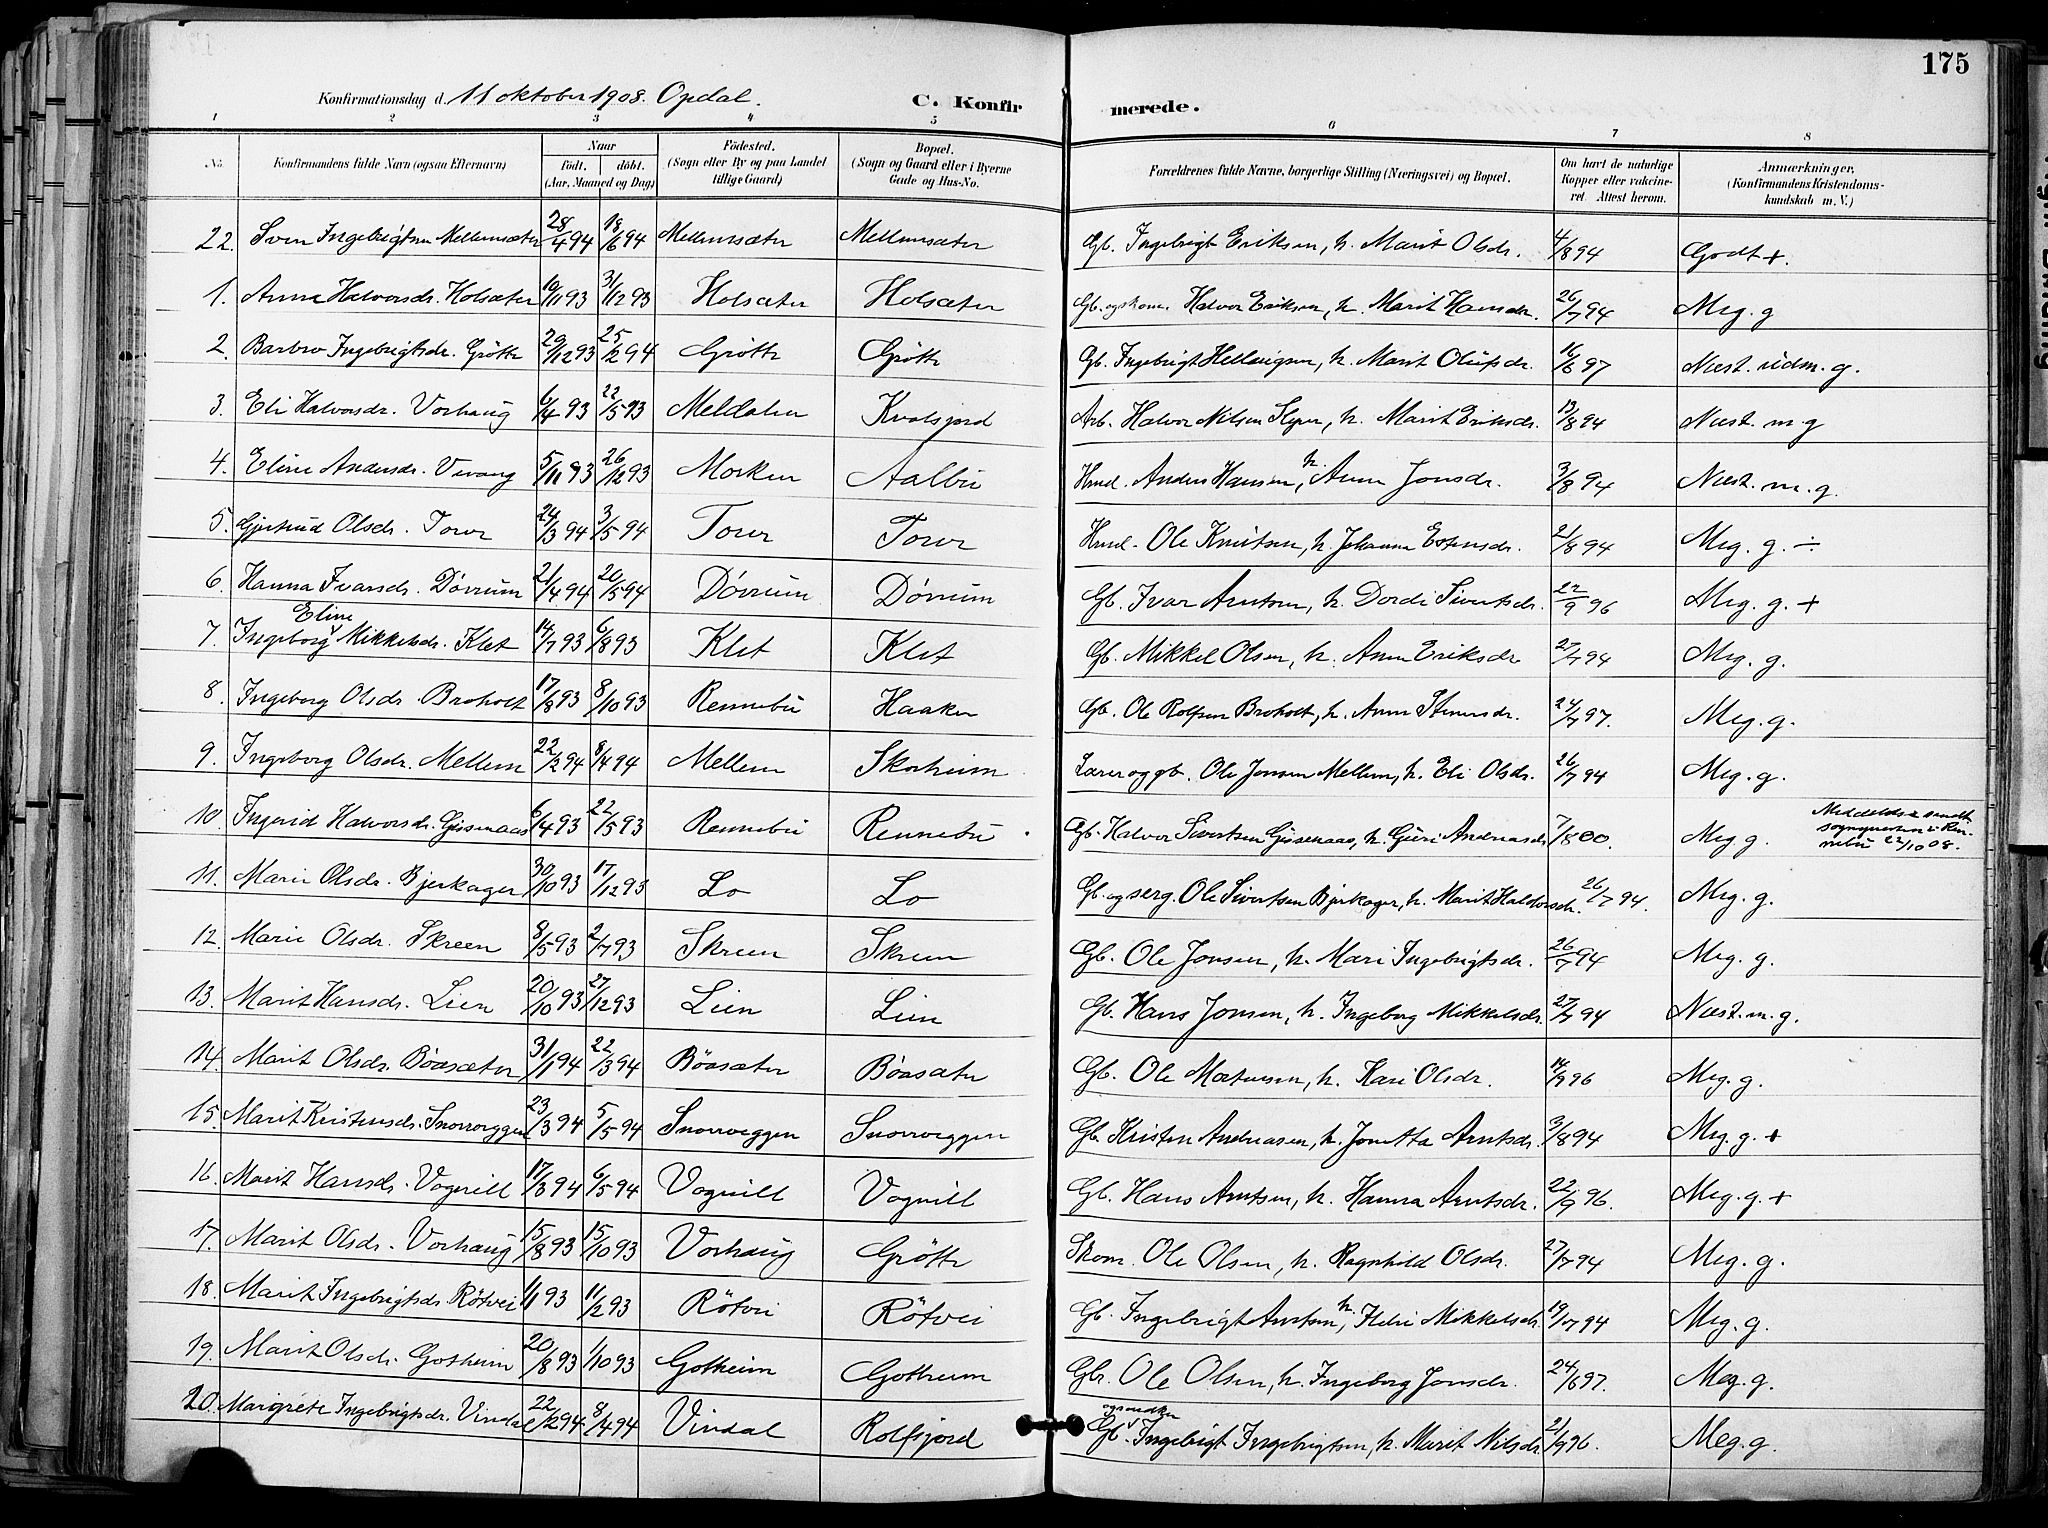 175
Konfirmationsdag d. 11 oktober 1908. Opdal.
C. Konfirmerede.
1 2 3 4 5 6 7 8
No. | Konfirmandens fulde Navn (ogsaa Efternavn) | Naar født. døbt. (Aar, Maaned og Dag) | Fødested. (Sogn eller By og paa Landet tillige Gaard) | Bopæl. (Sogn og Gaard eller i Byerne Gade og Hus-No. | Forældrenes fulde Navne, borgerlige Stilling (Næringsvei) og Bopæl. | Om havt de naturlige Kopper eller vakcineret. Attest herom. | Anmærkninger. (Konfirmandens Kristendomskundskab m. V.)
22. Sven Ingebrigtsen Mellemsæter 28/4 94 18/6 94 Mellemsæter Mellemsæter Gb. Ingebrigt Eriksen, h. Marit Olsdr. 4/8 94 Godt +.
1. Anna Halvorsdr. Holsæter 10/11 93 31/12 93 Holsæter Holsæter Gb. og skom. Halvor Eriksen, h. Marit Hansdr. 26/7 94 Meg. g
2. Barbro Ingebrigtsdr. Grøtte 29/12 93 25/2 94 Grøtte Grøtte Gb. Ingebrigt Hellaugsen, h. Marit Olufsdr. 16/6 97 Næst. udm. g.
3. Eli Halvorsdr. Vorhaug 6/4 93 22/5 93 Meldalen Kvalsjord Arb. Halvor Nilsen h. Marit Eriksdr. 13/8 94 Næst. m. g
4. Eline Andersdr. Vivang 5/11 93 26/12 93 Morken Aalbu Hmd. Anders Hansen, h. Anne Jonsdr. 3/8 94 Næst. m. g.
5. Gjertrud Olsdr. Torve 24/3 94 3/5 94 Torve Torve Hmd. Ole Knutsen, h. Johanna Estensdr. 21/8 94 Meg. g. ÷
6. Hanna Ivarsdr. Dørrum 21/4 94 20/5 94 Dørrum Dørrum Gb. Ivar Arntsen, h. Dordi Sivertsdr. 22/9 96 Meg. g. +
7. Ingeborg Eline Mikkelsdr. Klet 14/7 93 6/8 93 Klet Klet Gb. Mikkel Olsen, h. Anne Eriksdr 27/7 94 Meg. g.
8. Ingeborg Olsdr. Broholt 17/8 93 8/10 93 Rennebu Haaker Gb. Ole Rolfsen Broholt, h. Anne Stenersdr. 24/7 97. Meg. g.
9. Ingeborg Olsdr. Mellem 22/2 94 8/4 94 Mellem Skorheim Lærer og gb. Ole Jonsen Mellem, h. Eli Olsdr. 26/7 94 Meg. g.
10. Ingerid Halvorsdr. Gissenaas 6/4 93 22/5 93 Rennebu Rennebu Gb. Halvor Sivertsen Gissenaas, h. Guri Andreasdr 7/8 00. Meg g. Meddelelse sendt sognepresten i Rennebu 22/10 08.
11. Marie Olsdr. Bjerkager 30/10 93 17/12 93 Lo Lo Gb. og serg. Ole Sivertsen Bjerkager, h. Marit Haldorsdr. 26/7 94. Meg. g.
12. Marie Olsdr. Skreen 8/5 93 2/7 93 Skreen Skreen Gb. Ole Jonsen, h. Mari Ingebrigtsdr. 26/7 94 Meg. g.
13. Marit Hansdr. Lien 20/10 93 27/12 93 Lien Lien Gb. Hans Jonsen, h. Ingeborg Mikkelsdr. 27/7 94 Næst. m. g.
14. Marit Olsdr. Bøasæter 31/1 94 22/3 94 Bøasæter Bøasæter Gb. Ole Mortensen, h. Kari Olsdr. 14/9 96 Meg. g.
15. Marit Kristensdr. Snorroeggen 23/3 94 5/5 94 Snorroeggen Snorroeggen Gb. Kristen Andreasen, h. Jonetta Arntsdr. 3/8 94 Meg. g. +
16. Marit Hansdr. Vognill 17/3 94 6/5 94 Vognill Vognill Gb. Hans Arntsen, h. Hanna Arntsdr. 22/9 96. Meg. g. +
17. Marit Olsdr. Vorhaug 15/8 93 15/10 93 Vorhaug Grøtte Skom. Ole Olsen, h. Ragnhild Olsdr. 27/7 94 Meg. g.
18. Marit Ingebrigtsdr. Røtvei 1/1 93 11/2 93 Røtvei Røtvei Gb. Ingebrigt Arntsen, h. Mikkelsdr. 19/7 94 Meg. g.
19. Marit Olsdr. Gotheim 20/8 93 1/10 93 Gotheim Gotheim Gbr. Ole Olsen, h. Ingeborg Jonsdr. 24/6 97. Meg. g.
20. Margrete Ingebrigtsdr. Vindal 22/2 94 8/4 94 Vindal Rolfsjord Gb. og snedker Ingebrigt Ingebrigtsen, h. Marit Nilsdr. 21/9 96. Meg. g.